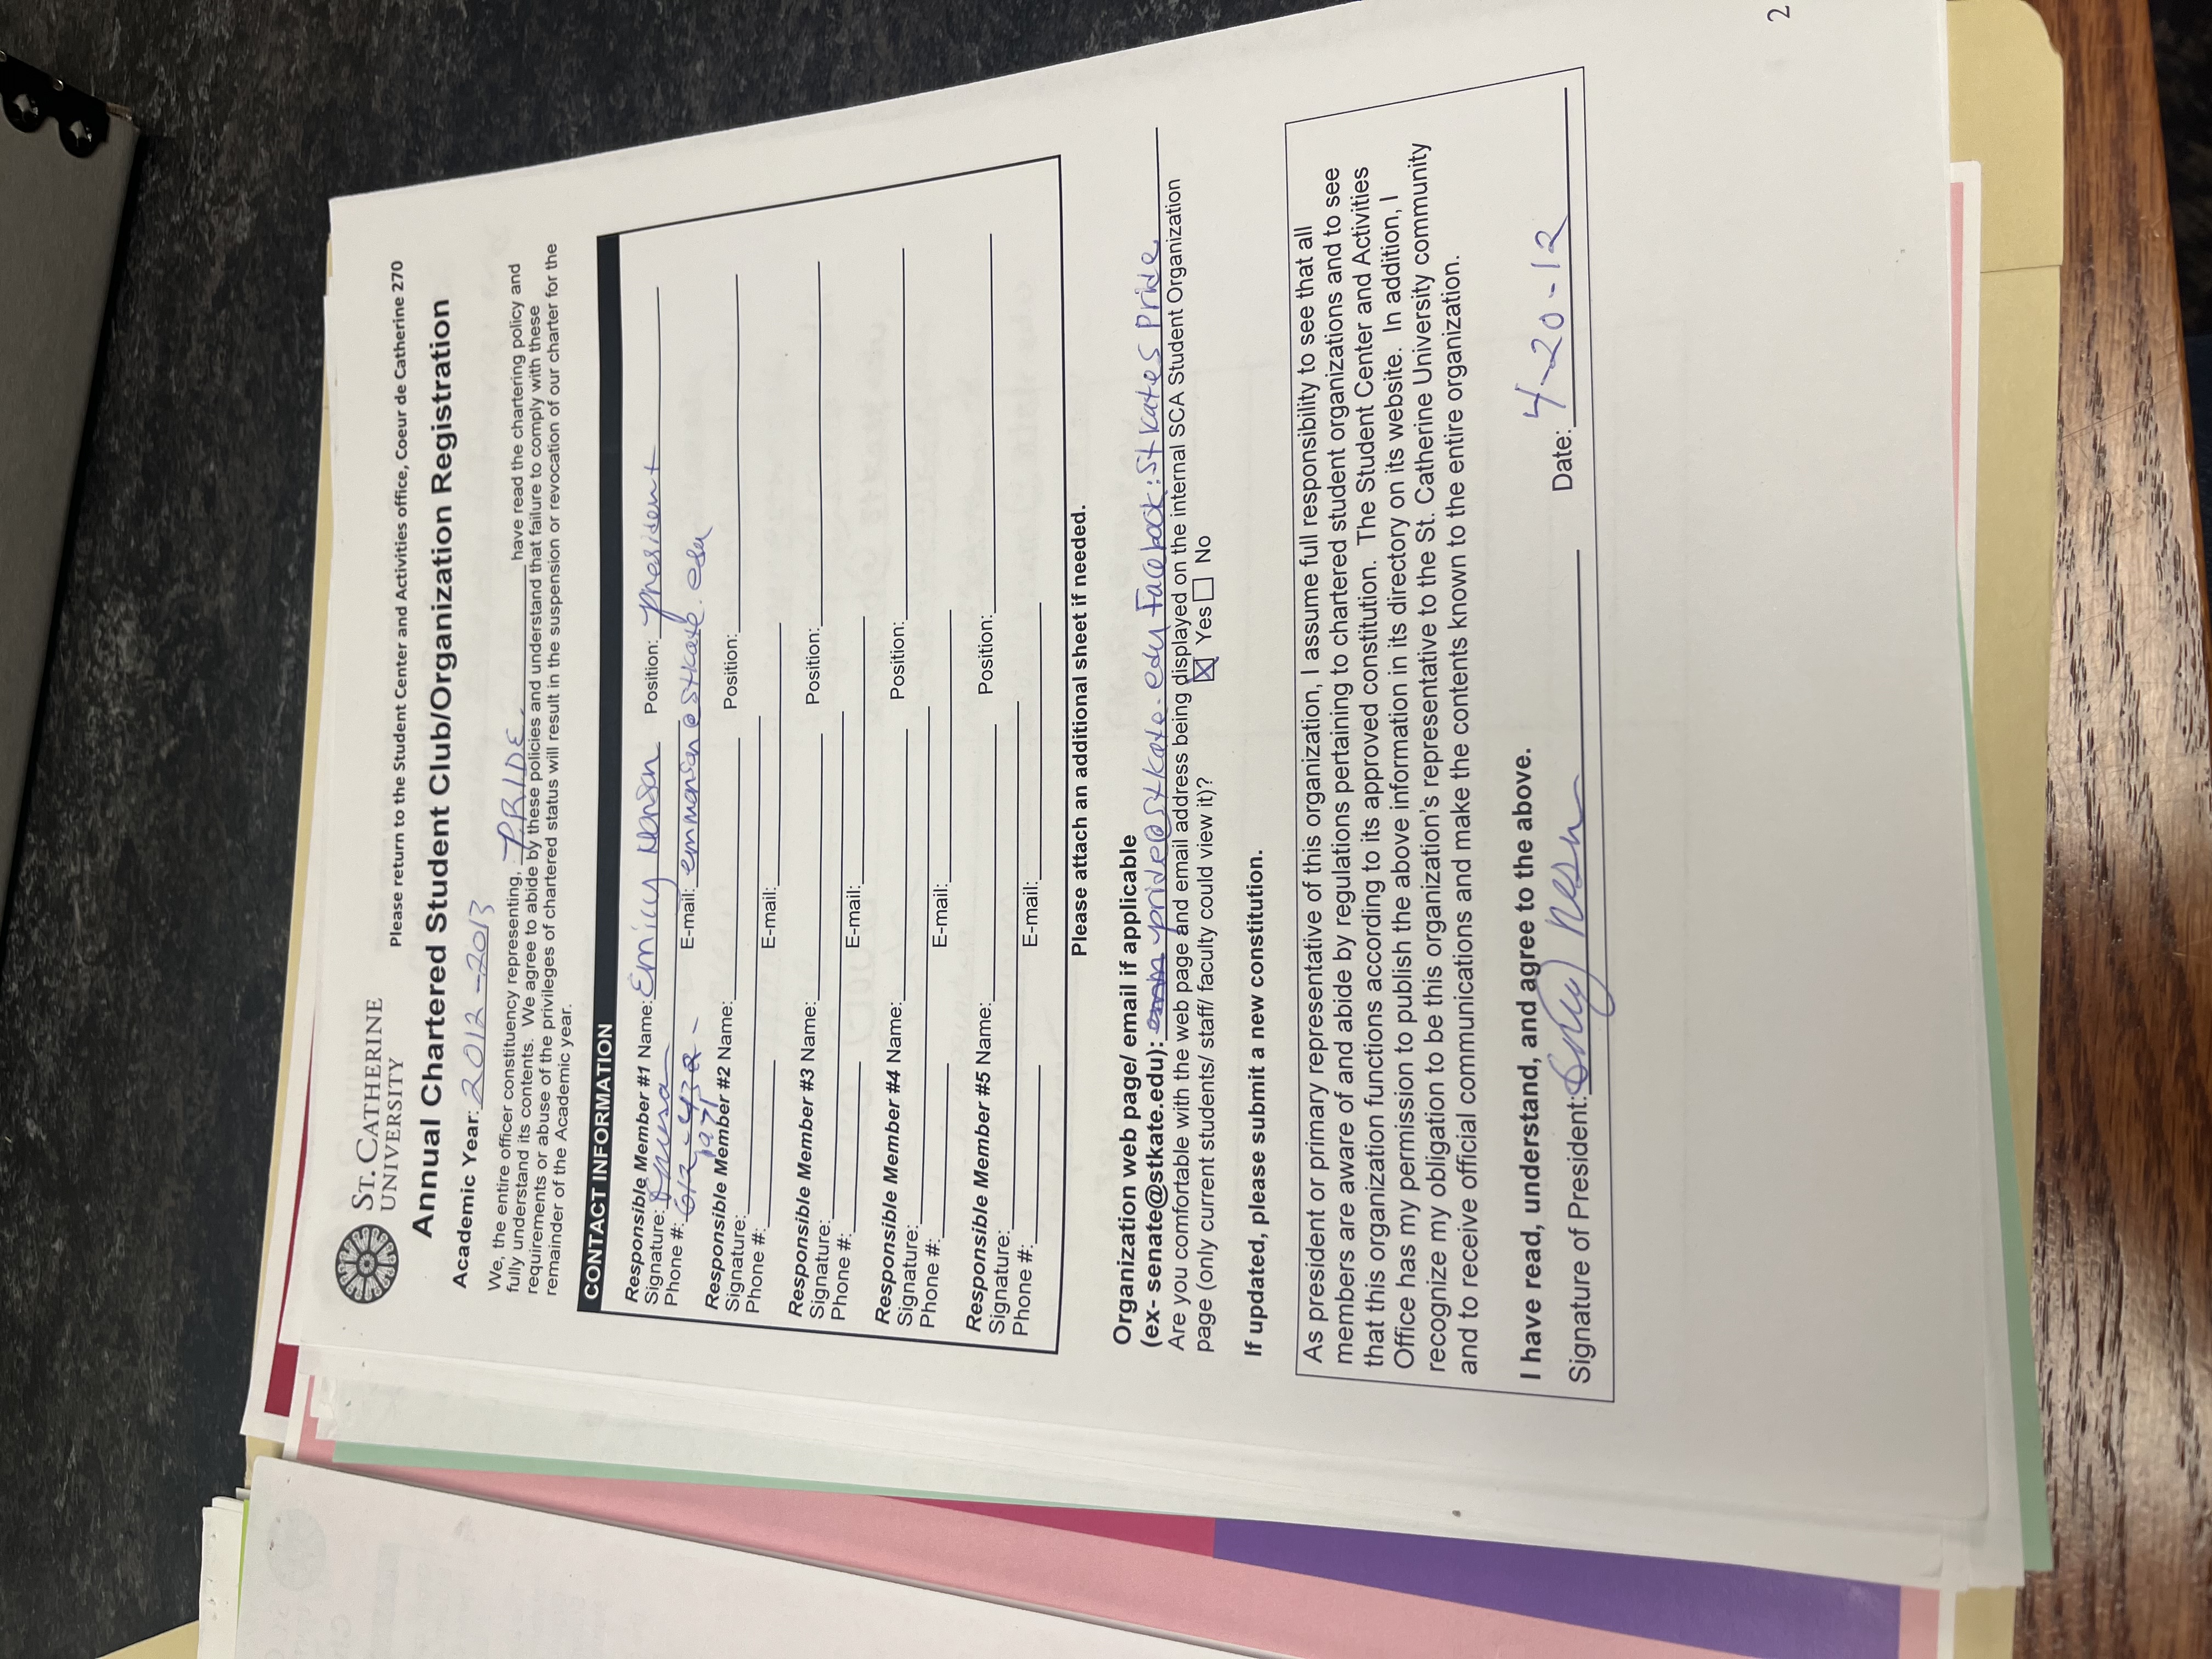 ST. CATHERINE
UNIVERSITY
Please return to the Student Center and Activities office, Coeur de Catherine 270
Annual Chartered Student Club/Organization Registration
Academic Year: 2012-2013
We, the entire officer constituency representing, PRIDE have read the chartering policy and
fully understand its contents. We agree to abide by these policies and understand that failure to comply with these
requirements or abuse of the privileges of chartered status will result in the suspension or revocation of our charter for the
remainder of the Academic year.
CONTACT INFORMATION
Responsible Member #1 Name: Emily Monson Position: president
Signature:
Phone #: 612-432- E-mail: emmonson@stkate.edu
1971
Responsible Member #2 Name: Position:
Signature:
Phone #: E-mail:
Responsible Member #3 Name: Position:
Signature:
Phone #: E-mail:
Responsible Member #4 Name: Position:
Signature:
Phone #: E-mail:
Responsible Member #5 Name: Position:
Signature:
Phone #: E-mail:
Please attach an additional sheet if needed.
Organization web page/ email if applicable
(ex- senate@stkate.edu): pride@stkate.edu Facebook: St Kates Pride
Are you comfortable with the web page and email address being displayed on the internal SCA Student Organization
page (only current students/ staff/ faculty could view it)? Yes No
If updated, please submit a new constitution.
As president or primary representative of this organization, I assume full responsibility to see that all
members are aware of and abide by regulations pertaining to chartered student organizations and to see
that this organization functions according to its approved constitution. The Student Center and Activities
Office has my permission to publish the above information in its directory on its website. In addition, I
recognize my obligation to be this organization's representative to the St. Catherine University community
and to receive official communications and make the contents known to the entire organization.
I have read, understand, and agree to the above.
Signature of President: Date: 4-20-12
2